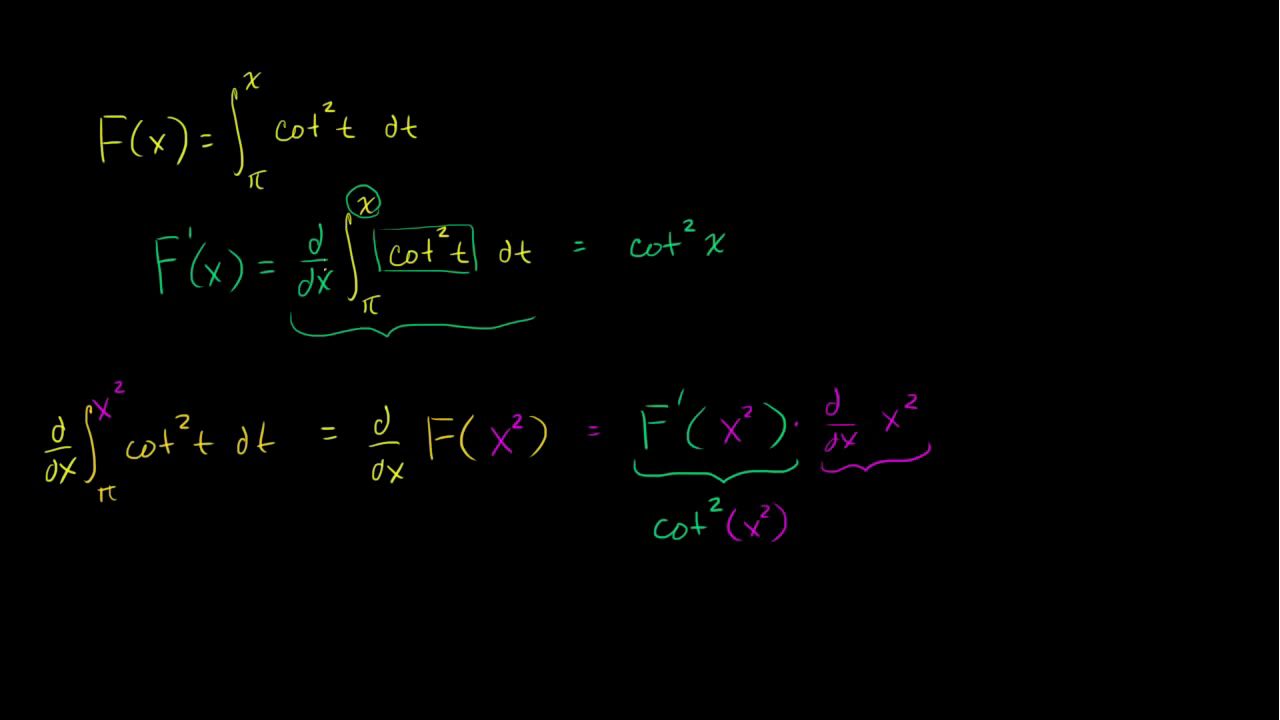 F(x) = ∫_π^x cot² t dt
F'(x) = d/dx ∫_π^x cot² t dt = cot² x
d/dx ∫_π^{x²} cot² t dt = d/dx F(x²) = F'(x²) · d/dx x²
cot²(x²)